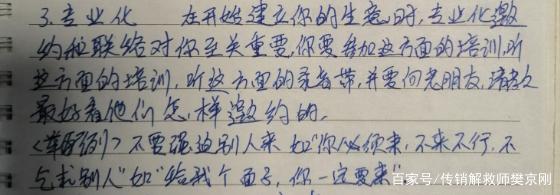 3.专业化 在开始建立你的生意时,专业化邀
约和联络对你至关重要,你要参加这方面的培训,听
这方面的培训,听这方面的录音带,并要向老朋友,请教
最好看他们怎样邀约的,
<举例> 不要强迫别人来 如"你必须来,不来不行,不
乞求别人"如"给我个面子,你一定要来"
百家号/传销解救师樊京刚